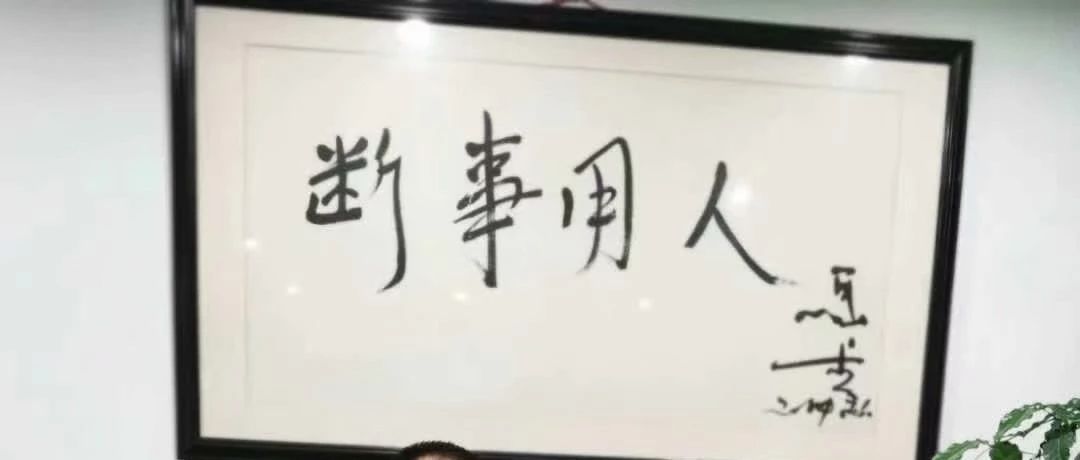 断事用人